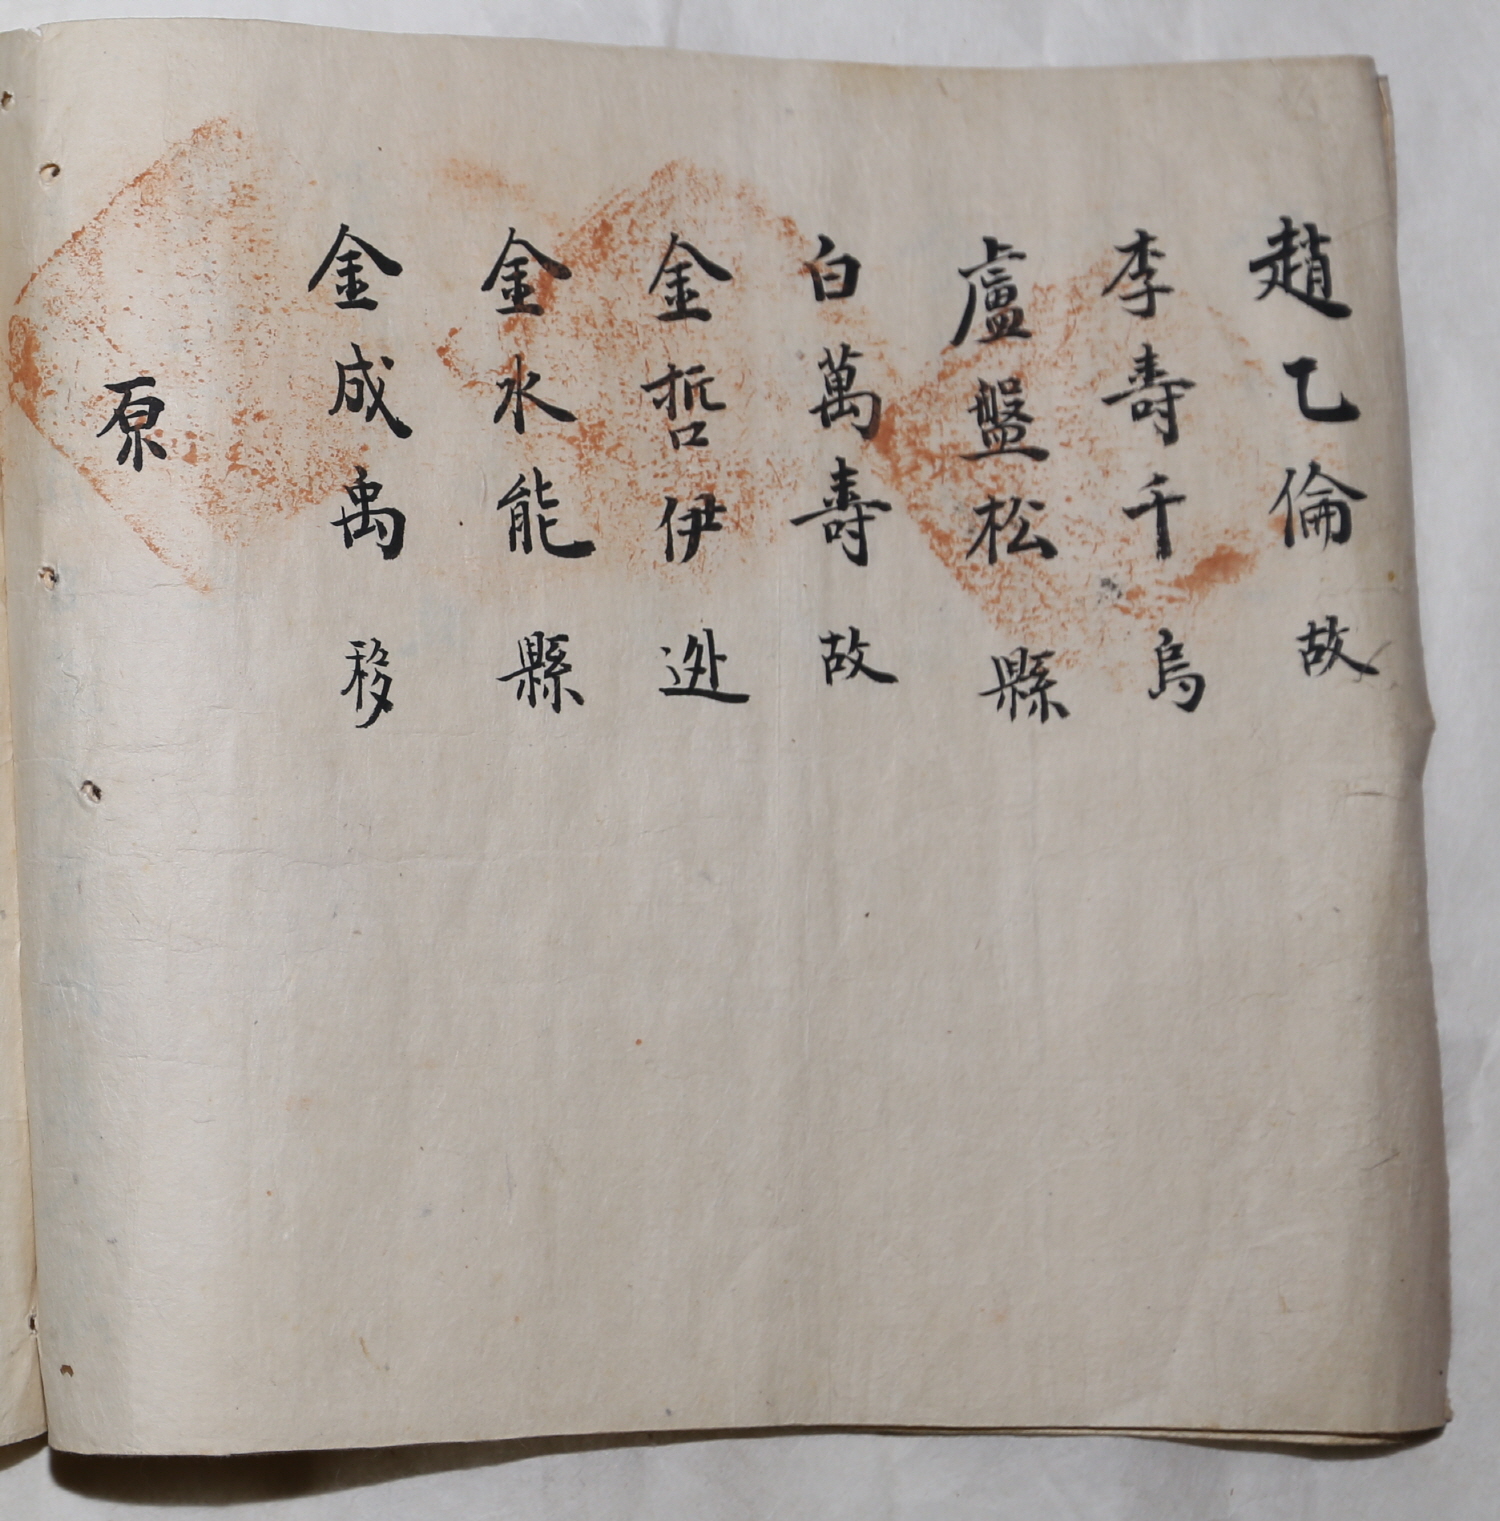 趙乙倫 故
李壽千 烏
盧盤松 縣
白萬壽 故
金哲伊 迯
金水能 縣
金成禹 移
原